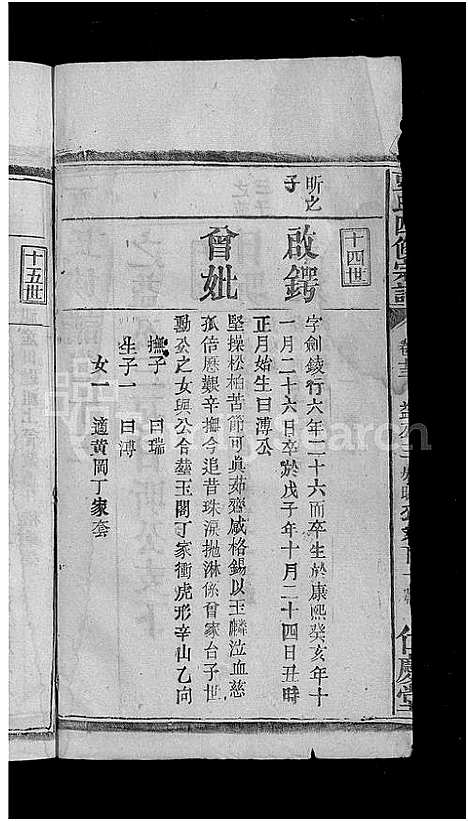 仕慶堂
十四世
昕之
子
啟鍔
字劍錂行六年二十六而卒生於康熙癸亥年十
一月二十六日卒於戊子年十月二十四日丑時
曾妣
正月始生曰溥公
堅操松柏苦節可眞茹齋咸格錫以玉麟泣血慈
孤倍歷艱辛撫今追昔珠淚拋淋係曾家台子世
勳公之女與公合塟玉閣丁家衝虎形辛山乙向
撫子一曰瑞
生子一曰溥
女一 適黃岡丁家套
十五世